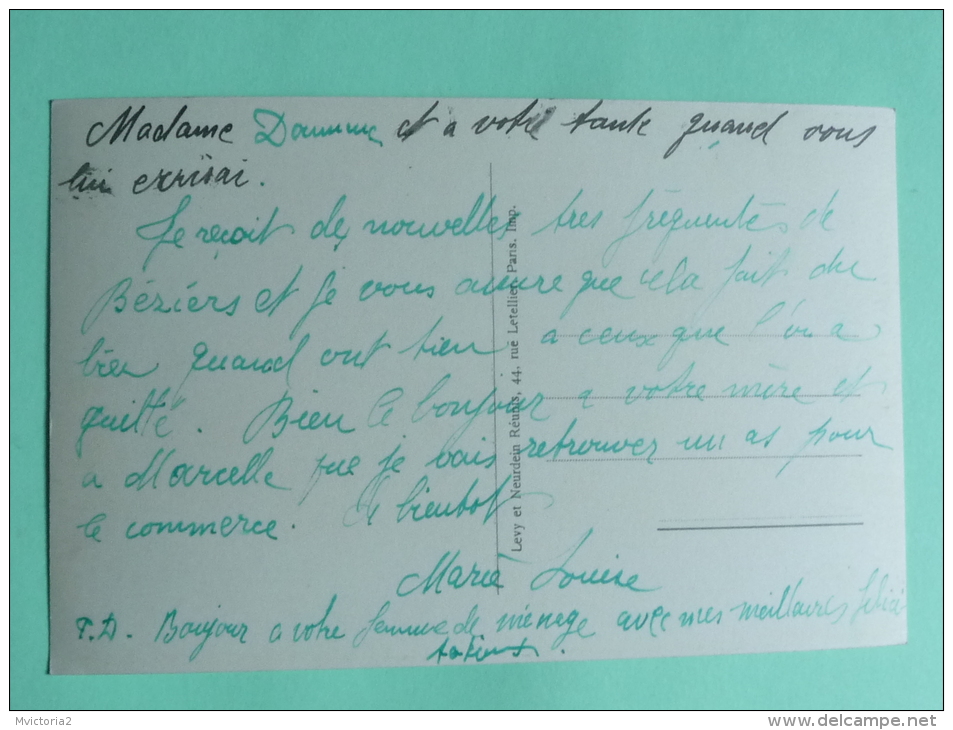 Madame Doumene et a votre tante quand vous
lui écrirai.
Je reçoit des nouvelles tres fréquentes de
Béziers et je vous assure que cela fait du
bien quand ont tien a ceux que l'on a
quitté. Bien le bonjour a votre mère et
a Marcelle que je vais retrouver un as pour
le commerce. A bientot
Marie Louise
P.S. Bonjour a votre femme de ménage avec mes meilleures félici
tations.
Levy et Neurdein Réunis, 44, rue Letellier, Paris. Imp.
Mvictoria2
www.delcampe.net